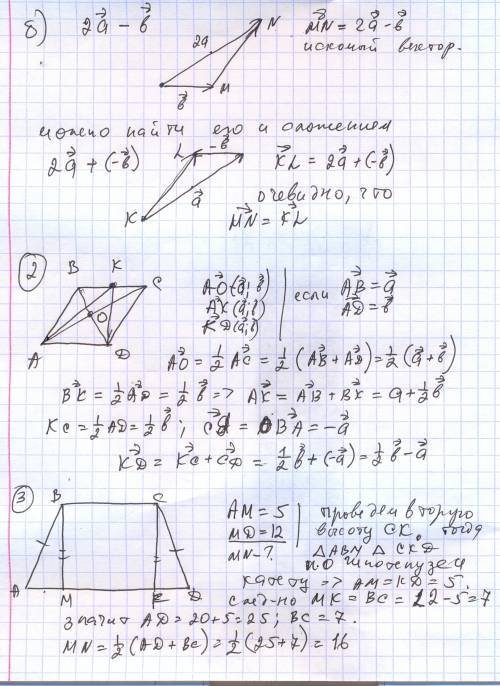 б) 2a⃗ − b⃗
2a
N
M
b⃗
MN⃗ = 2a⃗ − b⃗
искомый вектор.
можно найти его и сложением
2a⃗ + (−b⃗)
L
−b⃗
a⃗
K
KL⃗ = 2a⃗ + (−b⃗)
очевидно, что
MN⃗ = KL⃗
2
B K C
O
A D
AO⃗(a⃗; b⃗)
AK⃗(a⃗; b⃗)
KD⃗(a⃗; b⃗)
если AB⃗ = a⃗
AD⃗ = b⃗
AO⃗ = 1/2 AC⃗ = 1/2 (AB⃗ + AD⃗) = 1/2 (a⃗ + b⃗)
BK⃗ = 1/2 AD⃗ = 1/2 b⃗ => AK⃗ = AB⃗ + BK⃗ = a + 1/2 b⃗
KC = 1/2 AD = 1/2 b⃗ ; CD⃗ = BA⃗ = −a⃗
KD⃗ = KC⃗ + CD⃗ = 1/2 b⃗ + (−a⃗) = 1/2 b⃗ − a⃗
3
B C
A M K D
AM = 5
MD = 12
MN − ?
проведем вторую
высоту CK, тогда
△ABM △CKD
по гипотенузе и
катету => AM = KD = 5.
след-но MK = BC = 12 − 5 = 7
значит AD = 20 + 5 = 25 ; BC = 7.
MN = 1/2 (AD + BC) = 1/2 (25 + 7) = 16